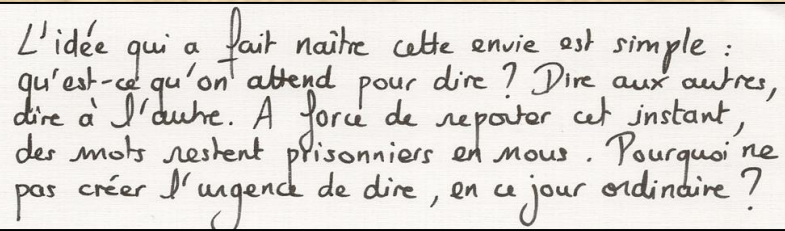 L'idée qui a fait naître cette envie est simple :
qu'est-ce qu'on attend pour dire ? Dire aux autres,
dire à l'autre. A force de reporter cet instant,
des mots restent prisonniers en nous. Pourquoi ne
pas créer l'urgence de dire, en ce jour ordinaire ?